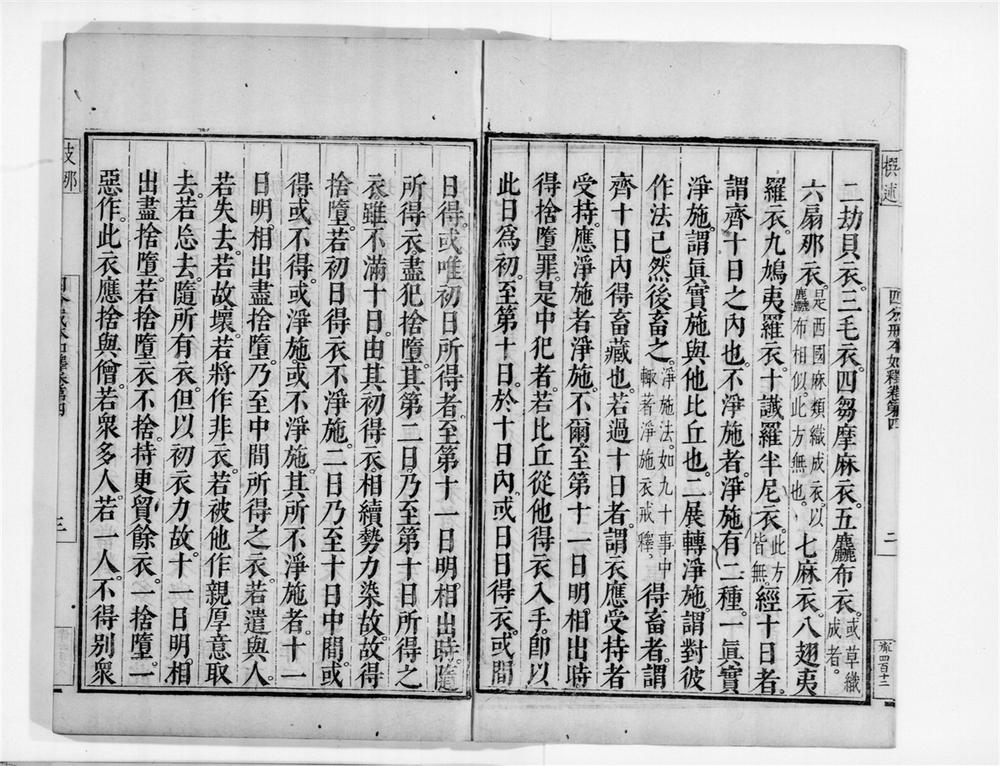 撰述
四分戒本如釋卷第四
二
二劫貝衣。三毛衣。四芻摩麻衣。五麤布衣。或草織成者。
六扇那衣。是西國麻類織成衣。以麤布相似。此方無也。七麻衣。八翅夷
羅衣。九鳩夷羅衣。十讖羅半尼衣。此方皆無。經十日者。
謂齊十日之內也。不淨施者。淨施有二種。一眞實
淨施。謂眞實施與他比丘也。二展轉淨施。謂對彼
作法已。然後畜之。淨施法。如九十事中輙著淨施衣戒釋。得畜者。謂
齊十日內得畜藏也。若過十日者。謂衣應受持者
受持。應淨施者淨施。不爾。至第十一日明相出時
得捨墮罪。是中犯者。若比丘從他得衣入手。卽以
此日爲初。至第十日。於十日內。或日日得衣。或間
日得。或唯初日所得者。至第十一日明。相出時。隨
所得衣。盡犯捨墮。其第二日。乃至第十日所得之
衣。雖不滿十日。由其初得衣。相續勢力染故。故得
捨墮。若初日得衣不淨施。二日乃至十日中間。或
得或不得。或淨施。或不淨施。其所不淨施者。十一
日明。相出盡捨墮。乃至中間所得之衣。若遣與人。
若失去。若故壞。若將作非衣。若被他作親厚意取
去。若忘去。隨所有衣。但以初衣力故。十一日明。相
出盡捨墮。若捨墮衣不捨。持更貿餘衣。一捨墮。一
惡作。此衣應捨與僧。若衆多人。若一人。不得别衆
支那
三